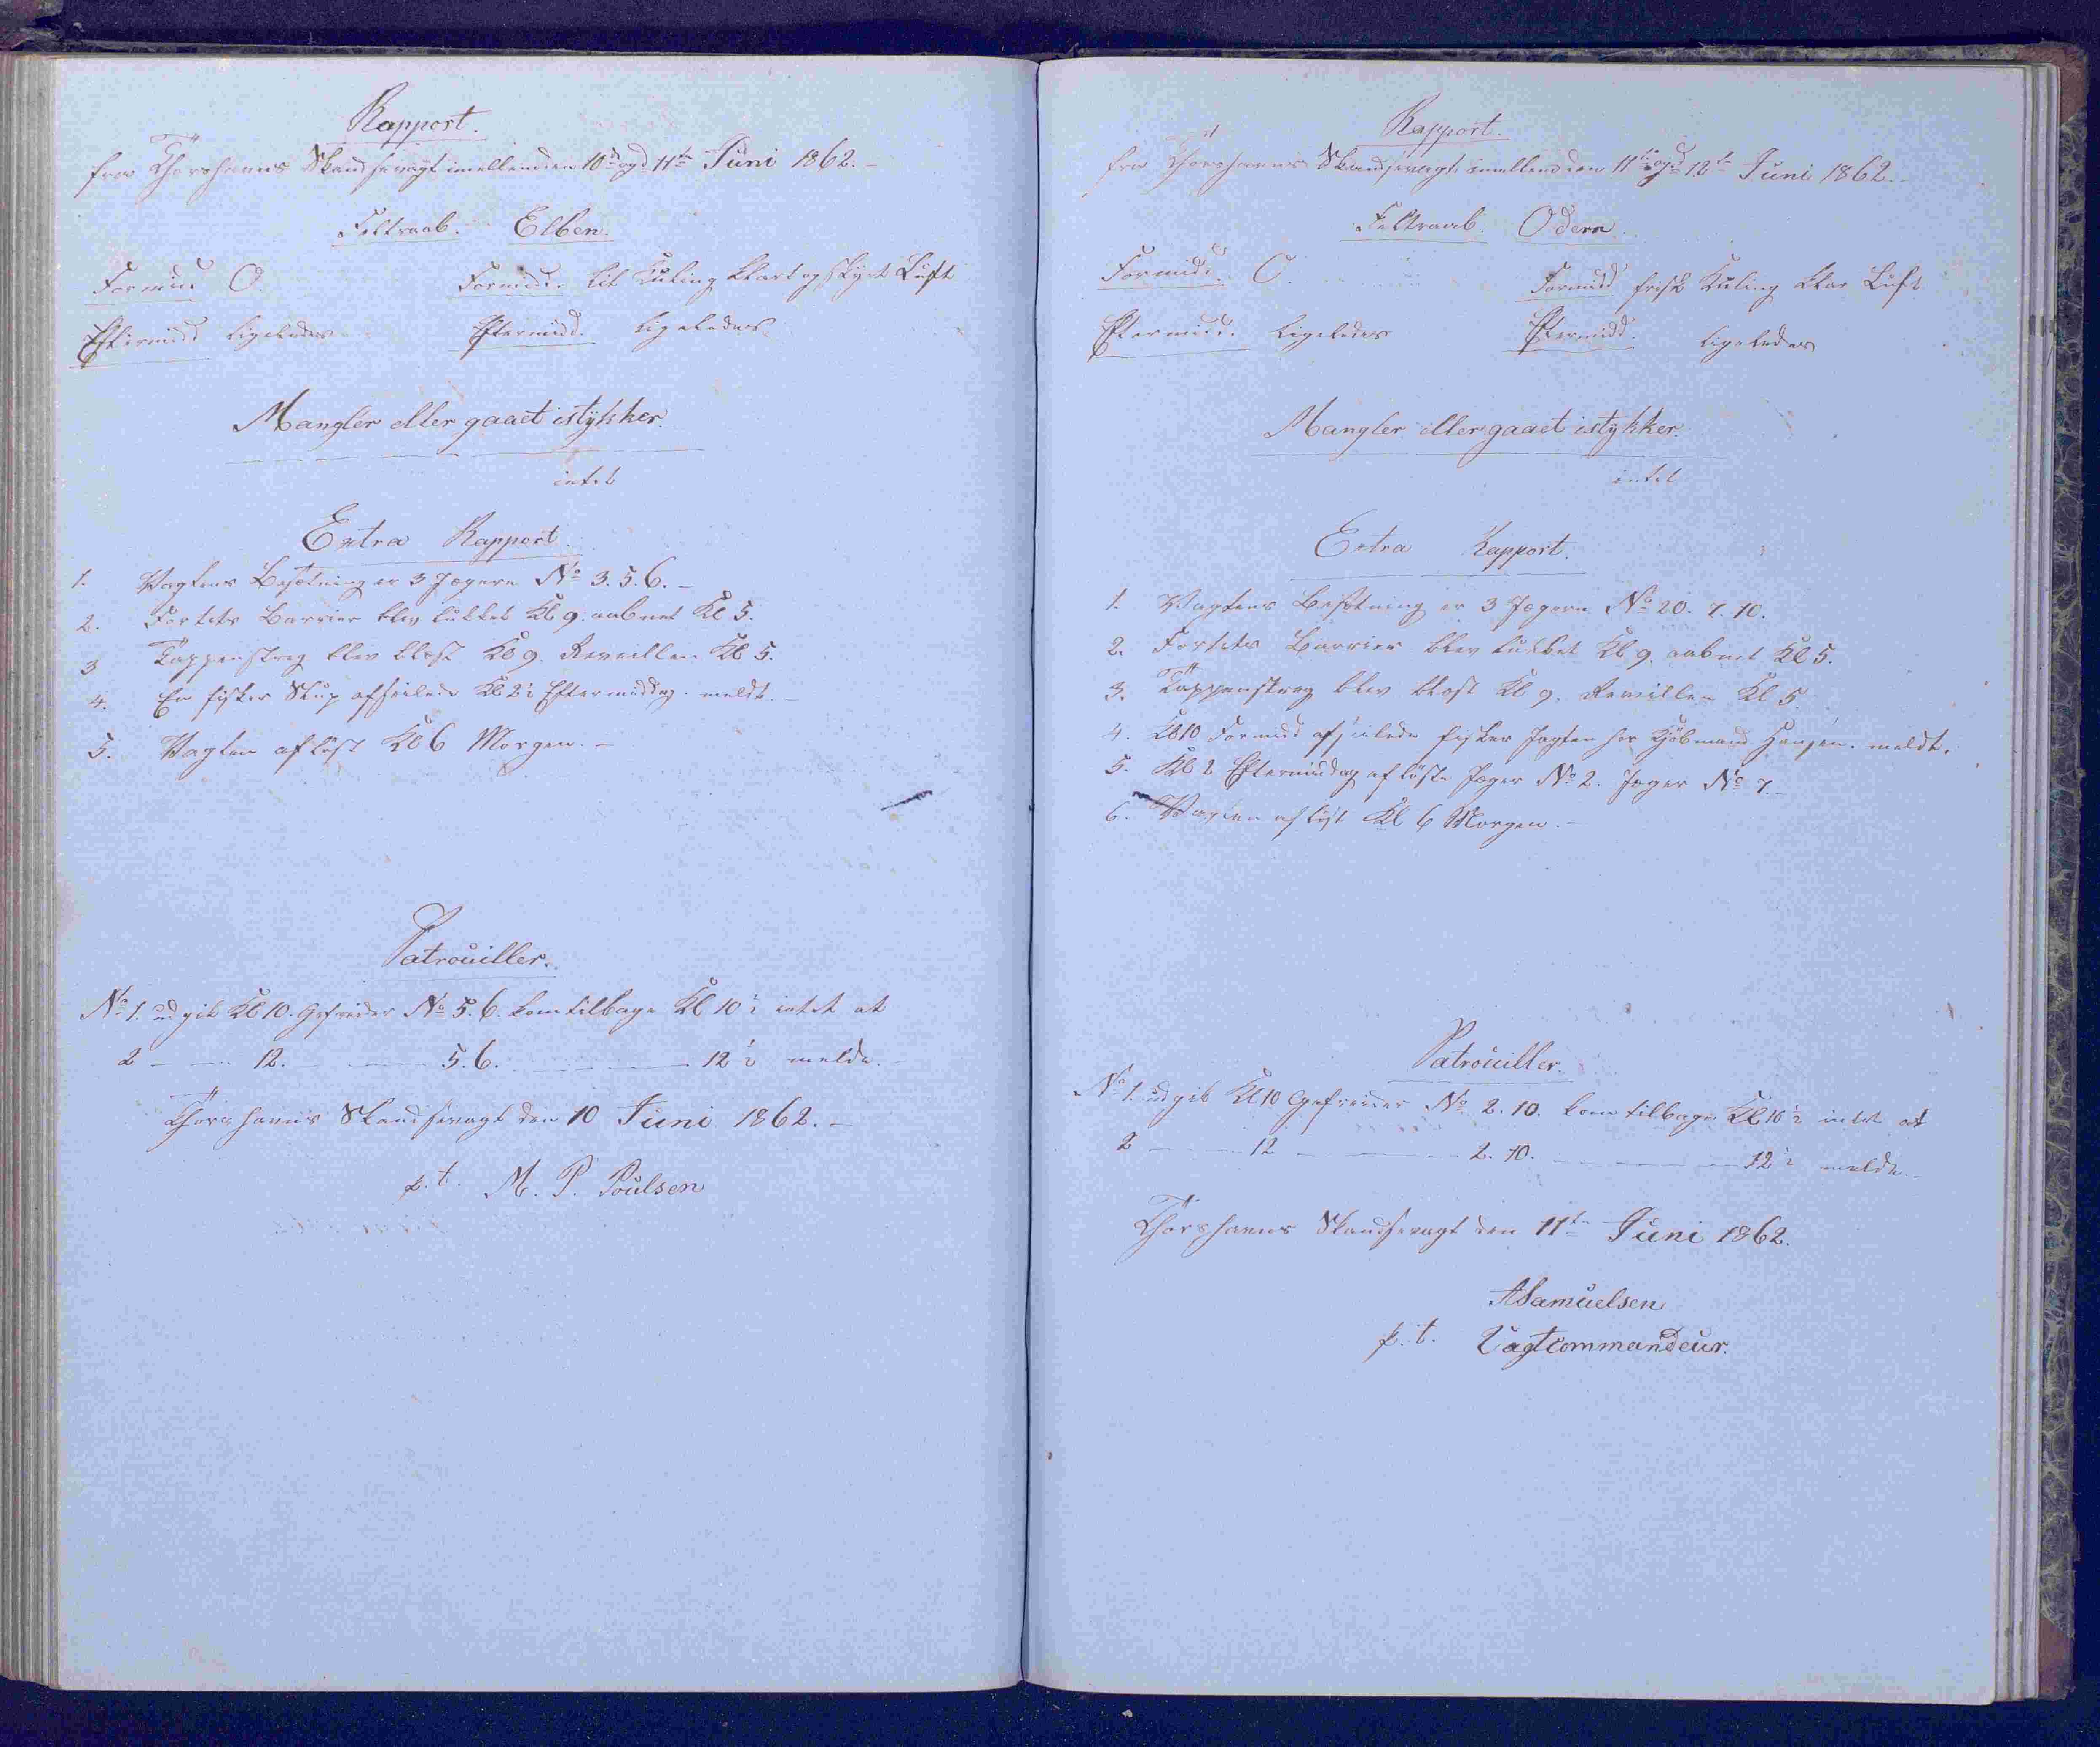 Rapport.
fra Thorshavns Skandsevagt imellem den 10d og d 11te Juni 1862.-
Feltraab. Elben.
Formid. O. Formidd. lit Kuling klart og skyet Luft
Eftermidd ligeledes Eftermidd. ligeledes
Mangler eller gaaet istykker.
intet
Extra Rapport.
1. Vagtens Besætning er 3 Jægere No 3. 5. 6. -
2. Fortets Barrier blev lukket Kl 9. aabnet Kl 5.
3 Tappenstreg blev blæst Kl 9. Reveillen Kl 5.
4. En fisker Slup afseilede Kl 2½ Eftermiddag. meldt. -
5. Vagten afløst Kl 6 Morgen. -
Patrouiller.
No 1. udgik Kl 10. Gefreider No 5. 6. kom tilbage Kl 10½ intet at
2 — — 12. — — 5. 6. — — 12½ melde. -
Thorshavns Skandsevagt den 10 Juni 1862. -
p. t. M. P. Poulsen
Rapport.
fra Thorshavns Skandsevagt imellem den 11te og d 12te Juni 1862. -
Feltraab. Odern
Formidd. O. Formidd frisk Kuling klar Luft
Eftermidd. ligeledes Eftermidd. ligeledes
Mangler eller gaaet istykker.
intet
Extra Rapport.
1. Vagtens Besætning er 3 Jægere No 20. 7. 10.
2. Fortets Barrier blev lukket Kl 9. aabnet Kl 5.
3. Tappenstreg blev blæst Kl 9. Reveillen Kl 5.
4. Kl 10 Formidd afseilede fisker Jagten for Kjøbmand Hansen. meldt.
5. Kl 2 Eftermiddag afløste Jæger No 2. Jæger No 7. -
6. Vagten afløst Kl 6 Morgen. -
Patrouiller.
No 1. udgik Kl 10 Gefreider No 2. 10. kom tilbage Kl 10½ intet at
2 — — 12 — — 2. 10. — — 12½ melde. -
Thorshavns Skandsevagt den 11te Juni 1862.
ASamuelsen
p. t. Vagtcommandeur.